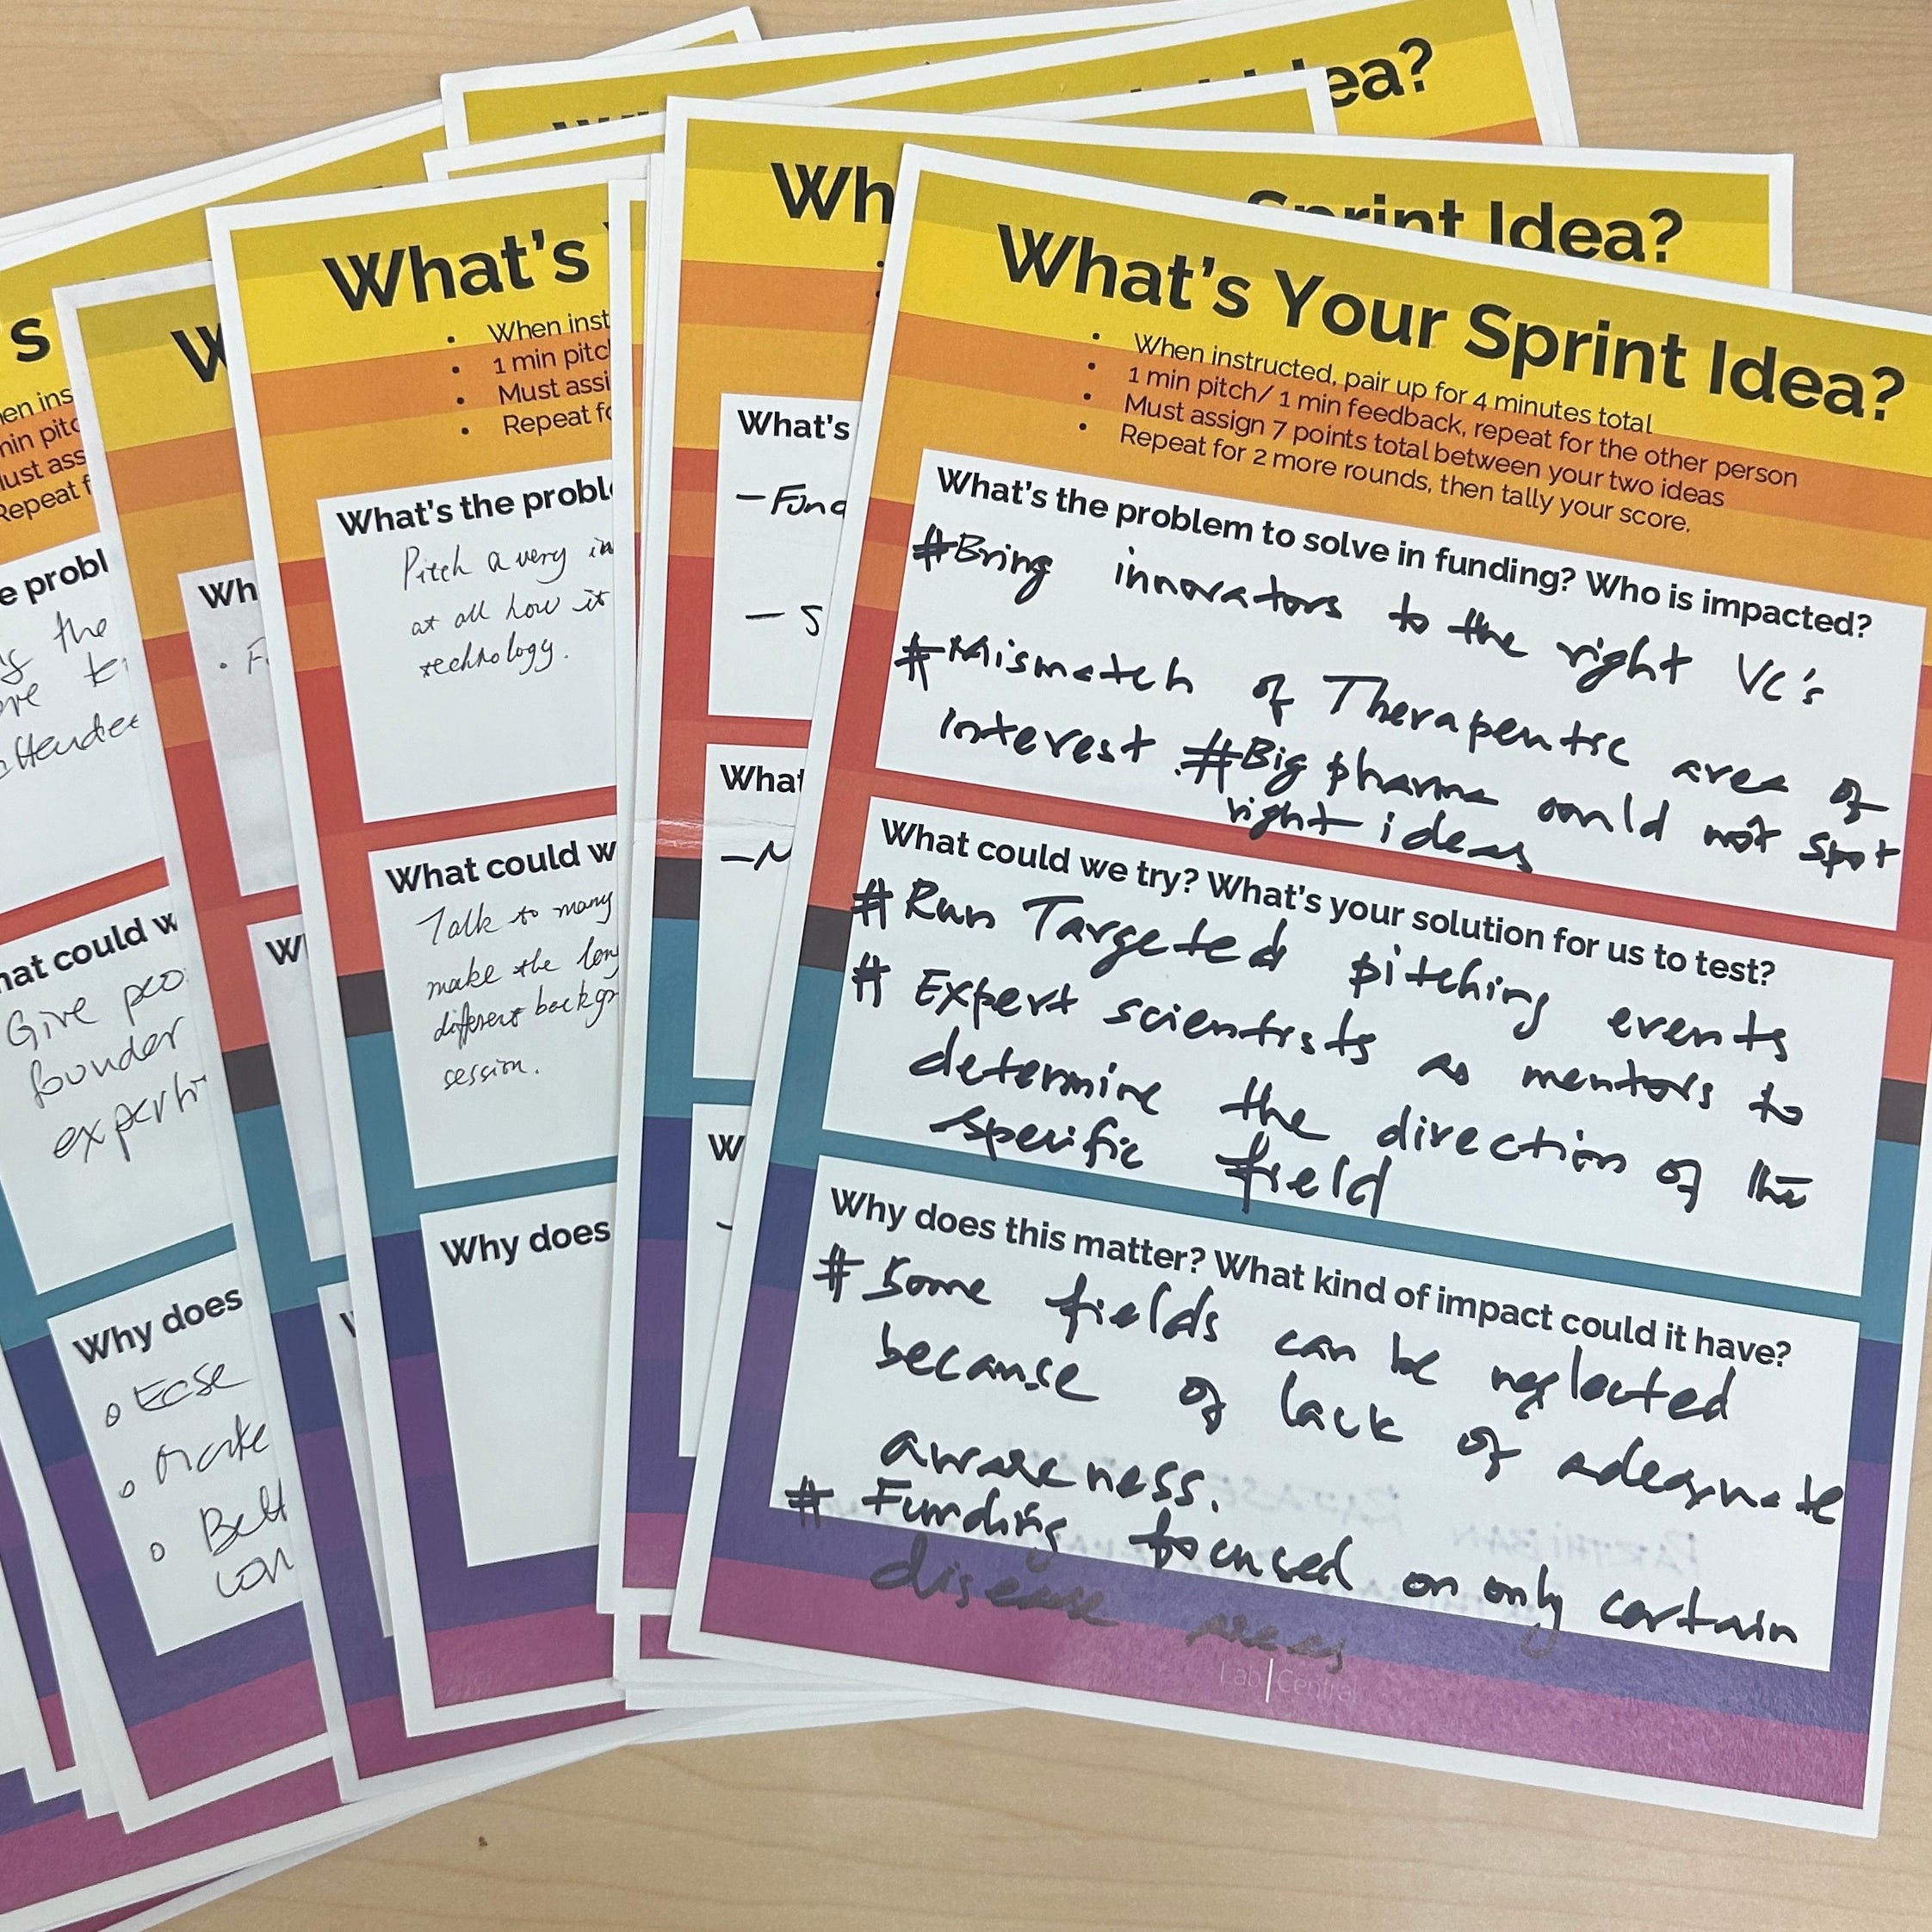 What's Your Sprint Idea?
When instructed, pair up for 4 minutes total
1 min pitch/ 1 min feedback, repeat for the other person
Must assign 7 points total between your two ideas
Repeat for 2 more rounds, then tally your score.
What's the problem to solve in funding? Who is impacted?
#Bring innovators to the right VC's
#Mismatch of Therapeutic area of
interest. #Big pharma could not spot
right ideas
What could we try? What's your solution for us to test?
# Run Targeted pitching events
# Expert scientists as mentors to
determine the direction of the
specific field
Why does this matter? What kind of impact could it have?
# Some fields can be neglected
because of lack of adequate
awareness.
# Funding focused on only certain
disease areas
Lab|Central
Sprint Idea?
Wh
What's
What
W
idea?
What's
When inst
1 min pitc
Must assi
Repeat fo
What's the probl
Pitch a very in
at all how it
technology.
What could w
Talk to many
make the long
different backgr
session.
Why does
W
Wh
W
's
en ins
min pitc
ust ass
Repeat f
e probl
the
hat could w
Give peo
founder
experti
Why does
Ease
Make